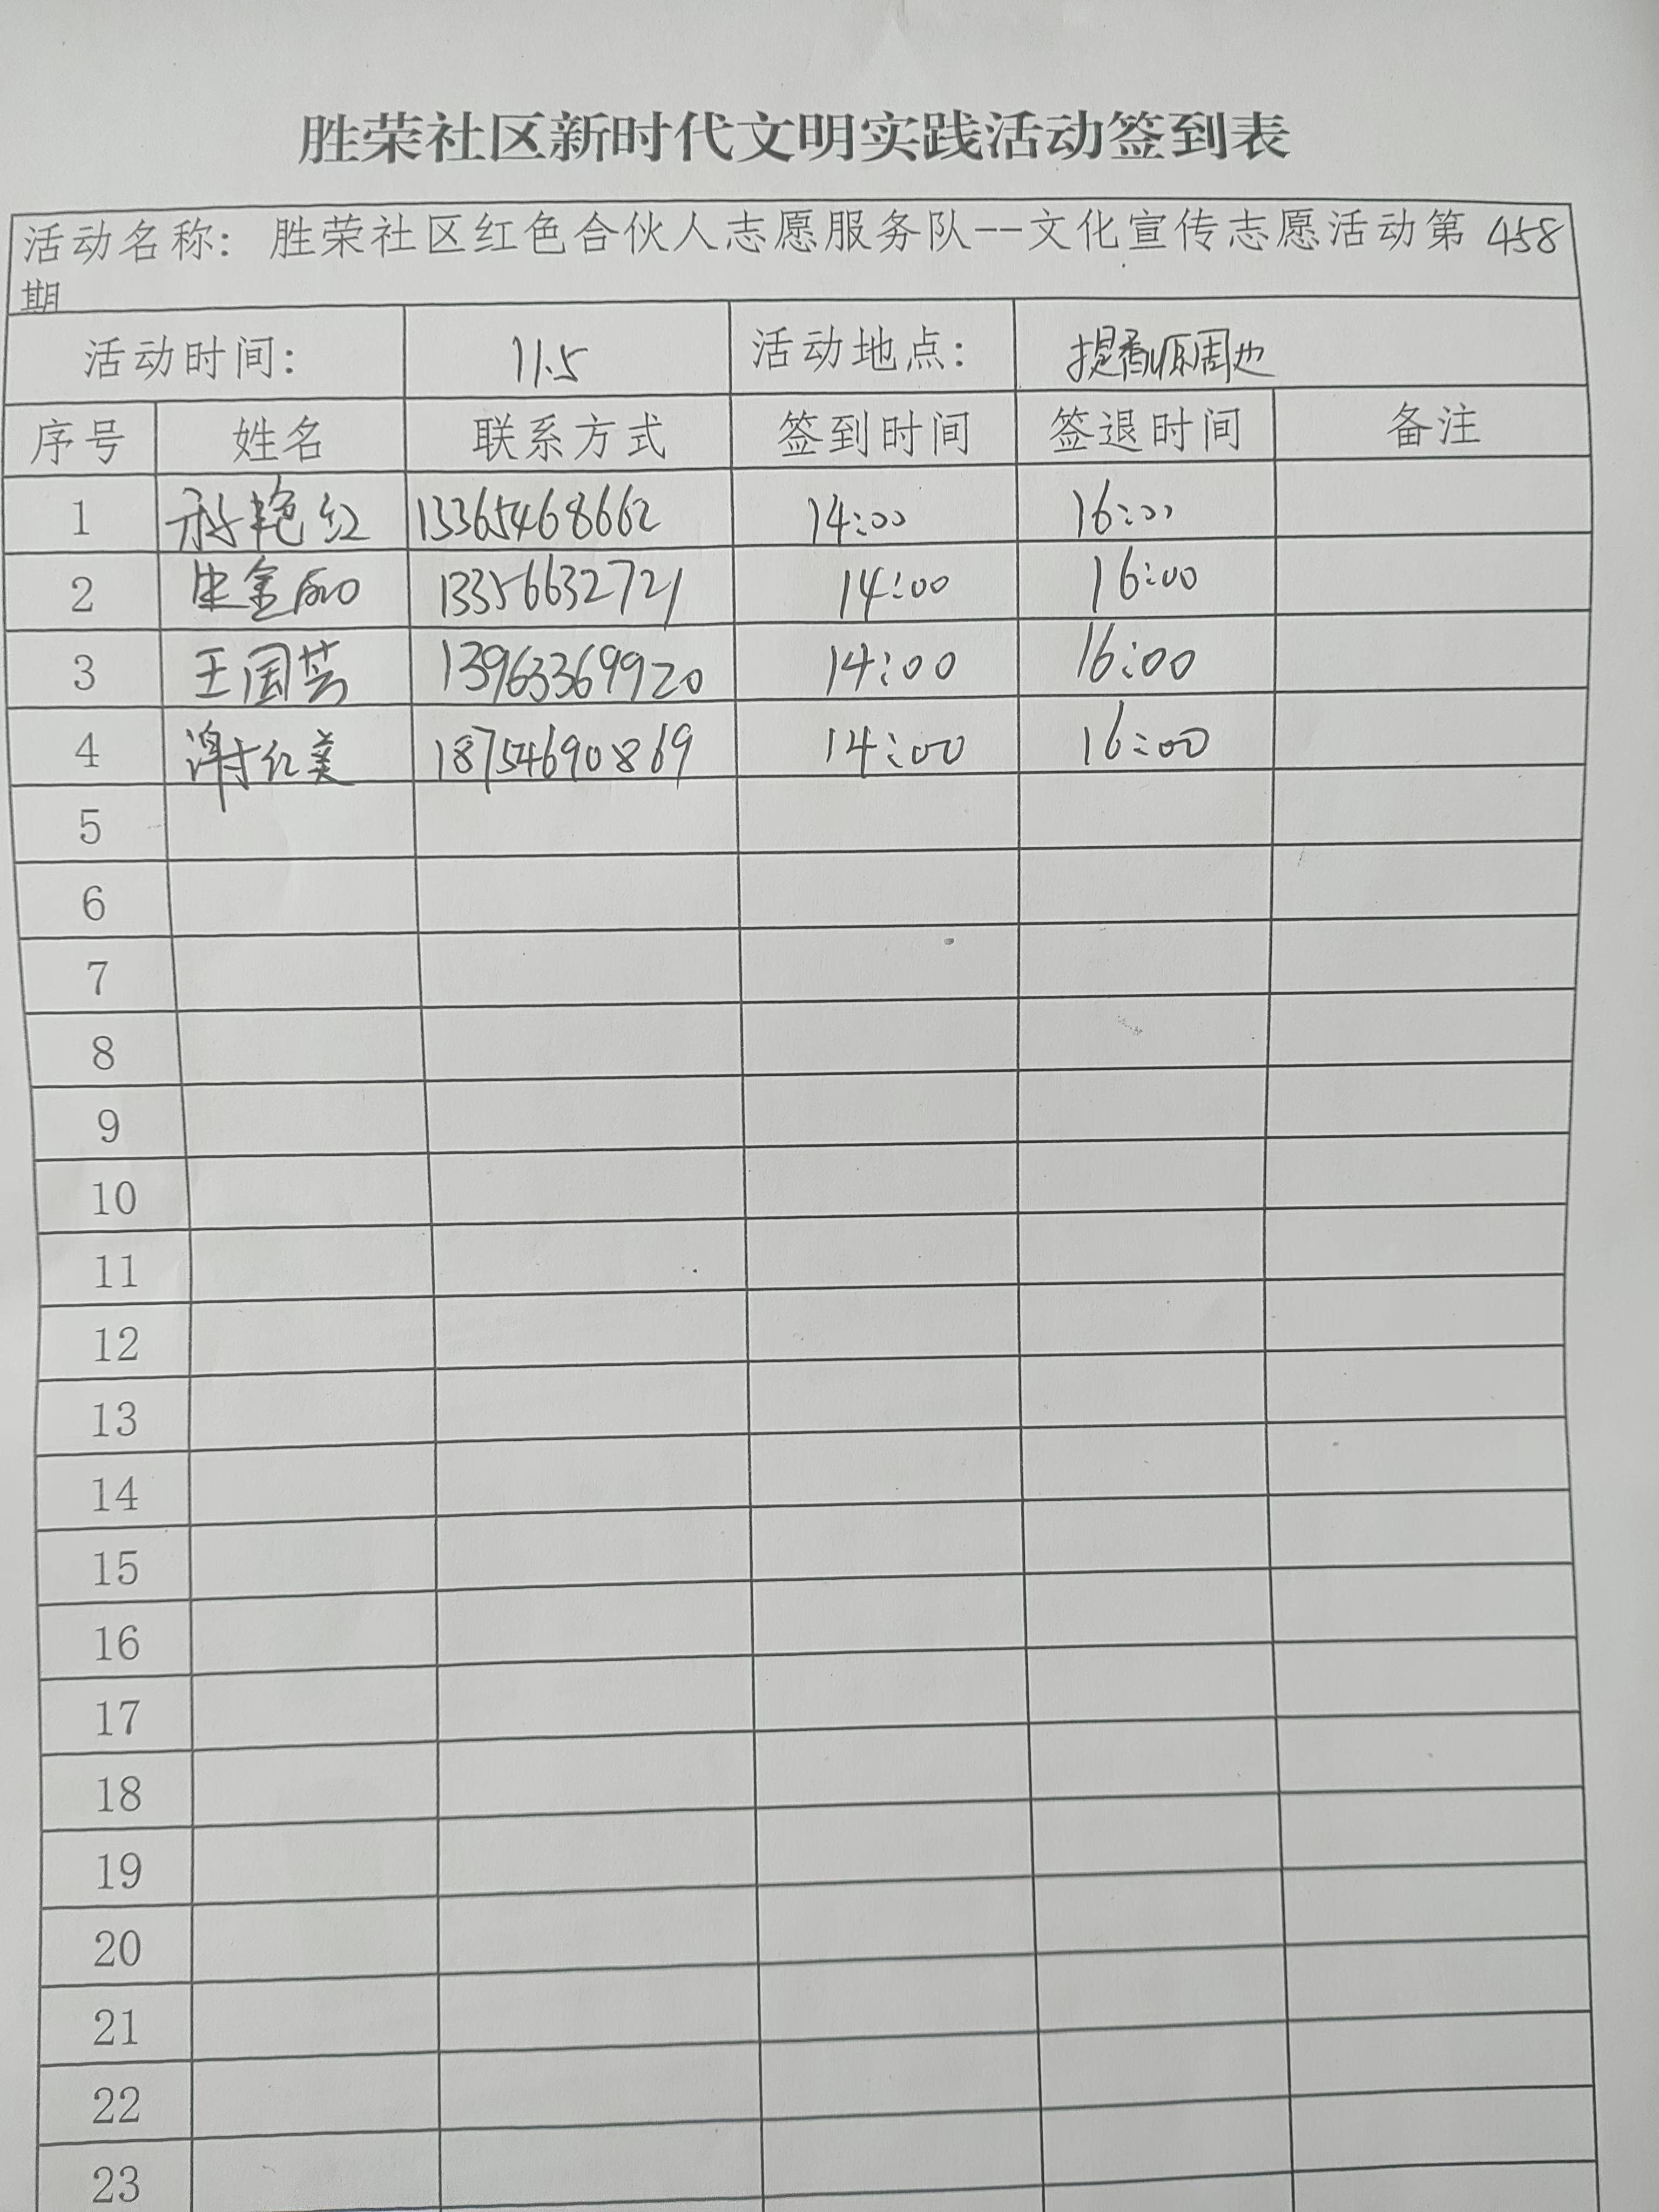 胜荣社区新时代文明实践活动签到表
活动名称：胜荣社区红色合伙人志愿服务队--文化宣传志愿活动第458
期
活动时间： 11.5 活动地点： 提香源周边
序号 姓名 联系方式 签到时间 签退时间 备注
1 艳红 13365468662 14:00 16:00
2 金 13356632721 14:00 16:00
3 王国芸 13963369920 14:00 16:00
4 谢红美 18754690869 14:00 16:00
5
6
7
8
9
10
11
12
13
14
15
16
17
18
19
20
21
22
23